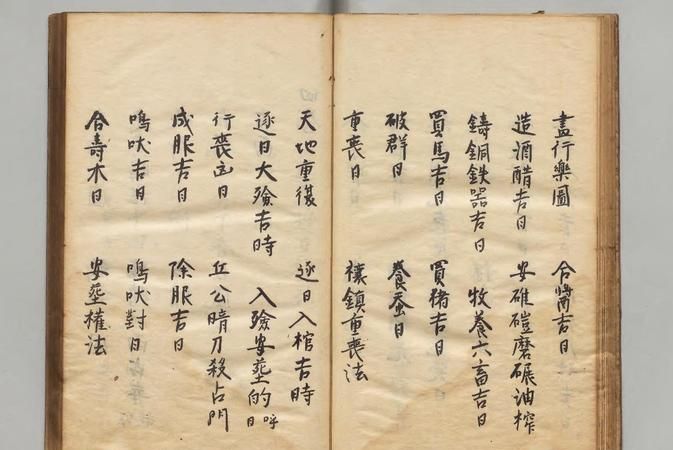 畫行樂圖 合醬吉日
造酒醋吉日 安碓磑磨碾油榨
鑄銅鉄器吉日 牧養六畜吉日
買馬吉日 買猪吉日
破群日 養蚕日
重喪日 禳鎮重喪法
天地重復 逐日入棺吉時
逐日大殮吉時 入殮安塟的呼日
行喪凶日 丘公暗刀殺占門
成服吉日 除服吉日
鳴吠吉日 鳴吠對日
合壽木日 安塟權法